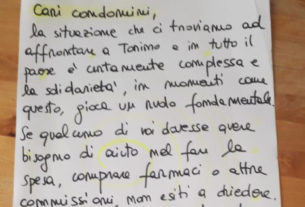 Cari condomini,
la situazione che ci troviamo ad
affrontare a Torino e in tutto il
paese è certamente complessa e
la solidarietà, in momenti come
questo, gioca un ruolo fondamentale.
Se qualcuno di voi dovesse avere
bisogno di aiuto nel fare la
spesa, comprare farmaci o altre
commissioni, non esiti a chiedere.